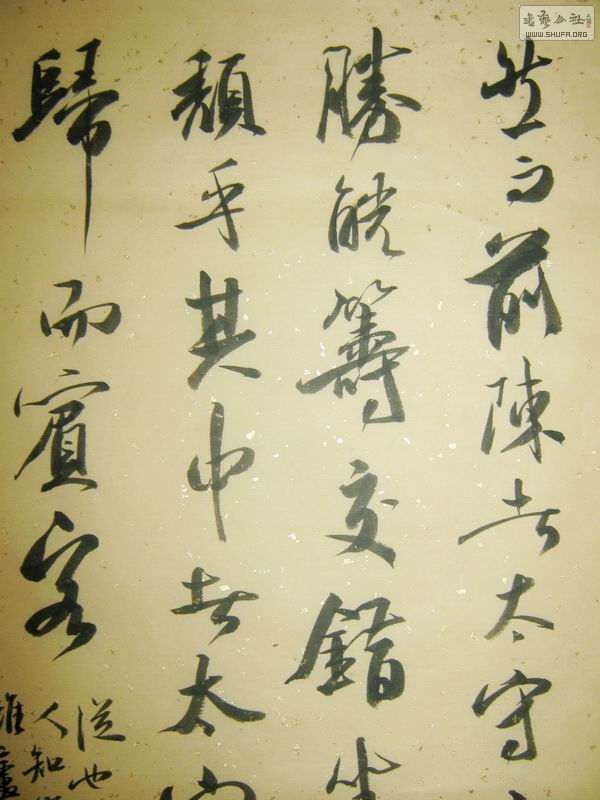 書藝公社
WWW.SHUFA.ORG
然而前陳者太守
勝觥籌交錯坐
頹乎其中者太守
歸而賓客
從也
人知
誰廬